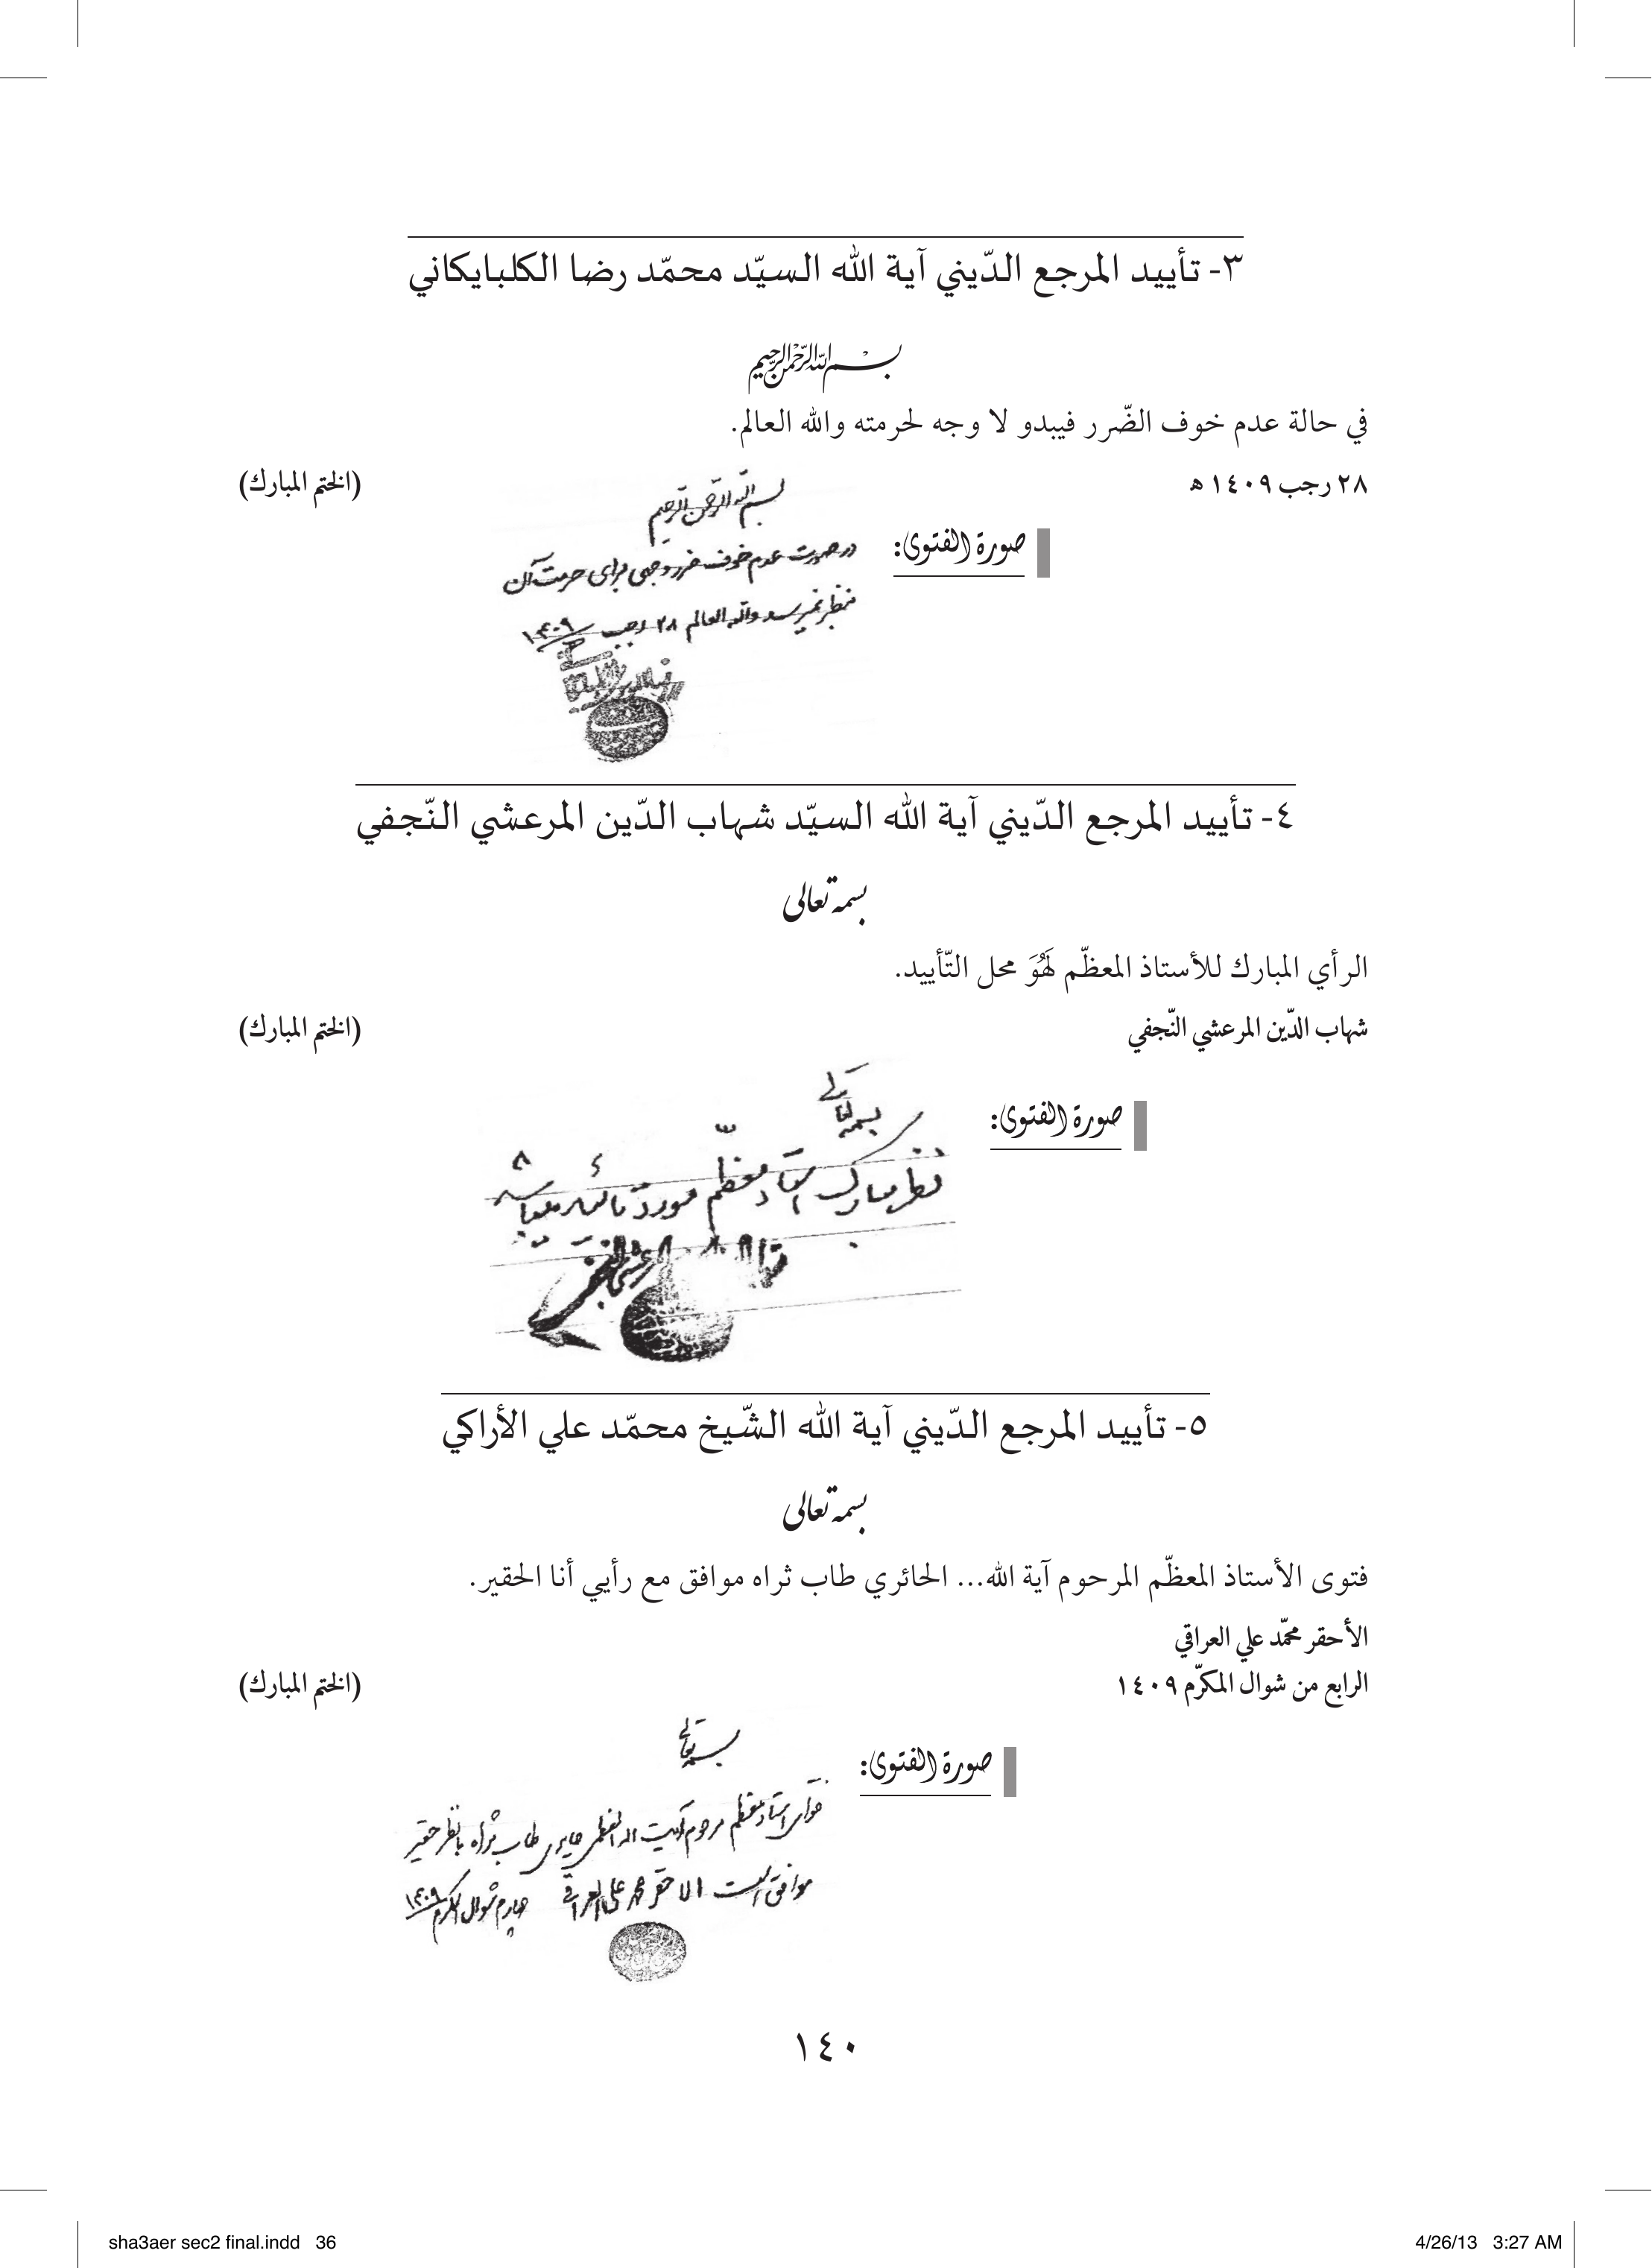 ٣- تأييد المرجع الدّيني آية الله السيّد محمّد رضا الكلبايكاني
بسم الله الرّحمن الرّحيم
في حالة عدم خوف الضّرر فيبدو لا وجه لحرمته والله العالم.
٢٨ رجب ١٤٠٩ هـ
(الختم المبارك)
صورة الفتوى:
بسم الله الرحمن الرحيم
در صورت عدم خوف ضرر وجهی برای حرمت آن
بنظر نمیرسد والله العالم ۲۸ رجب ۱۴۰۹
٤- تأييد المرجع الدّيني آية الله السيّد شهاب الدّين المرعشي النّجفي
بسمه تعالى
الرأي المبارك للأستاذ المعظّم لَهُوَ محل التّأييد.
شهاب الدّين المرعشي النّجفي
(الختم المبارك)
صورة الفتوى:
بسمه تعالی
نظر مبارک استاد معظّم مورد تأئید میباشد
٥- تأييد المرجع الدّيني آية الله الشّيخ محمّد علي الأراكي
بسمه تعالى
فتوى الأستاذ المعظّم المرحوم آية الله... الحائري طاب ثراه موافق مع رأيي أنا الحقير.
الأحقر محمّد علي العراقي
الرابع من شوال المكرّم ١٤٠٩
(الختم المبارك)
صورة الفتوى:
بسمه تعالی
فتوای استاد معظم مرحوم آیت الله العظمی حایری طاب ثراه با نظر حقیر
موافق است الاحقر محمد علی العراقی چهارم شوال المکرم ۱۴۰۹
١٤٠
sha3aer sec2 final.indd 36
4/26/13 3:27 AM